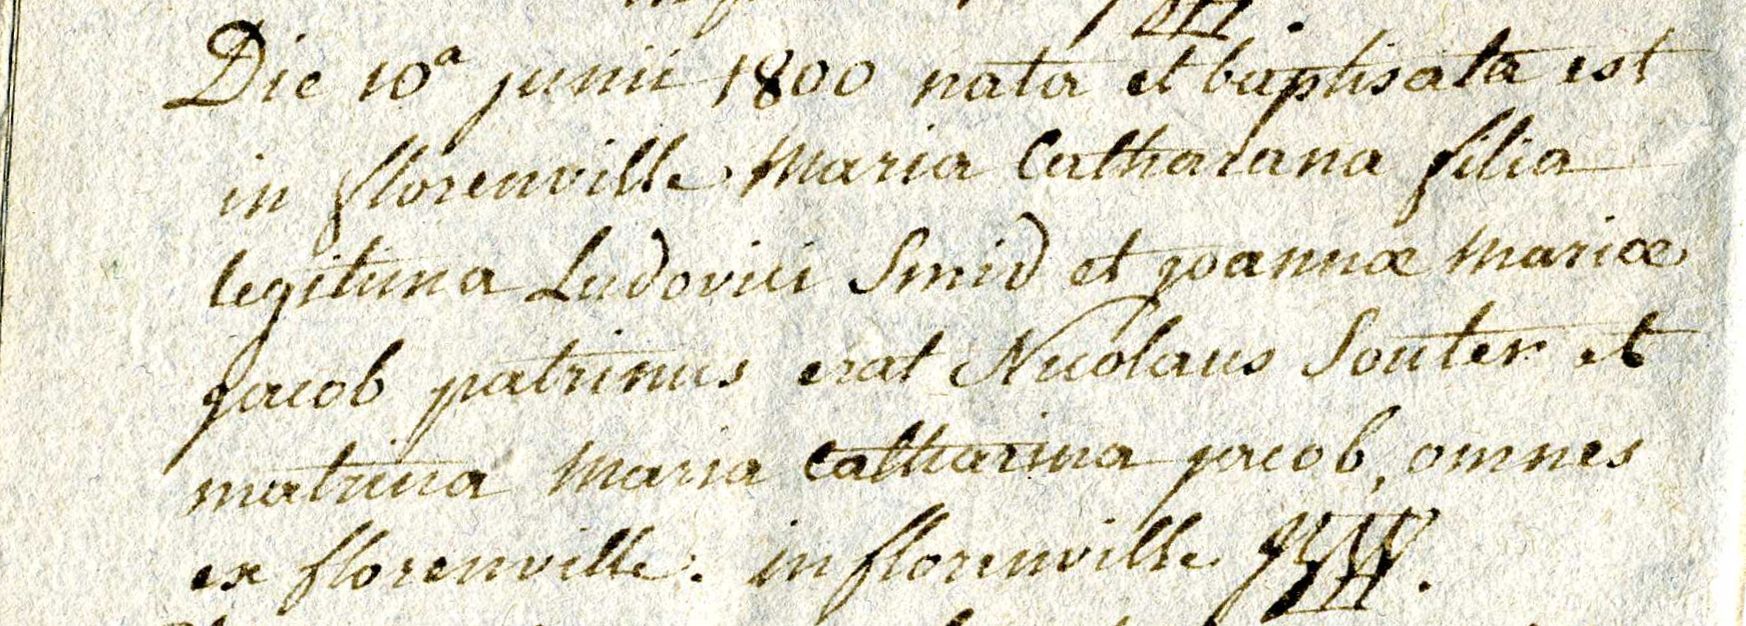 Die 10a junii 1800 nata et baptisata est
in florenville Maria Catharana filia
legitima Ludovici Smid et joannæ Mariæ
jacob patrinus erat Nicolaus Souter et
matrina Maria Catharina jacob, omnes
ex florenville. in florenville